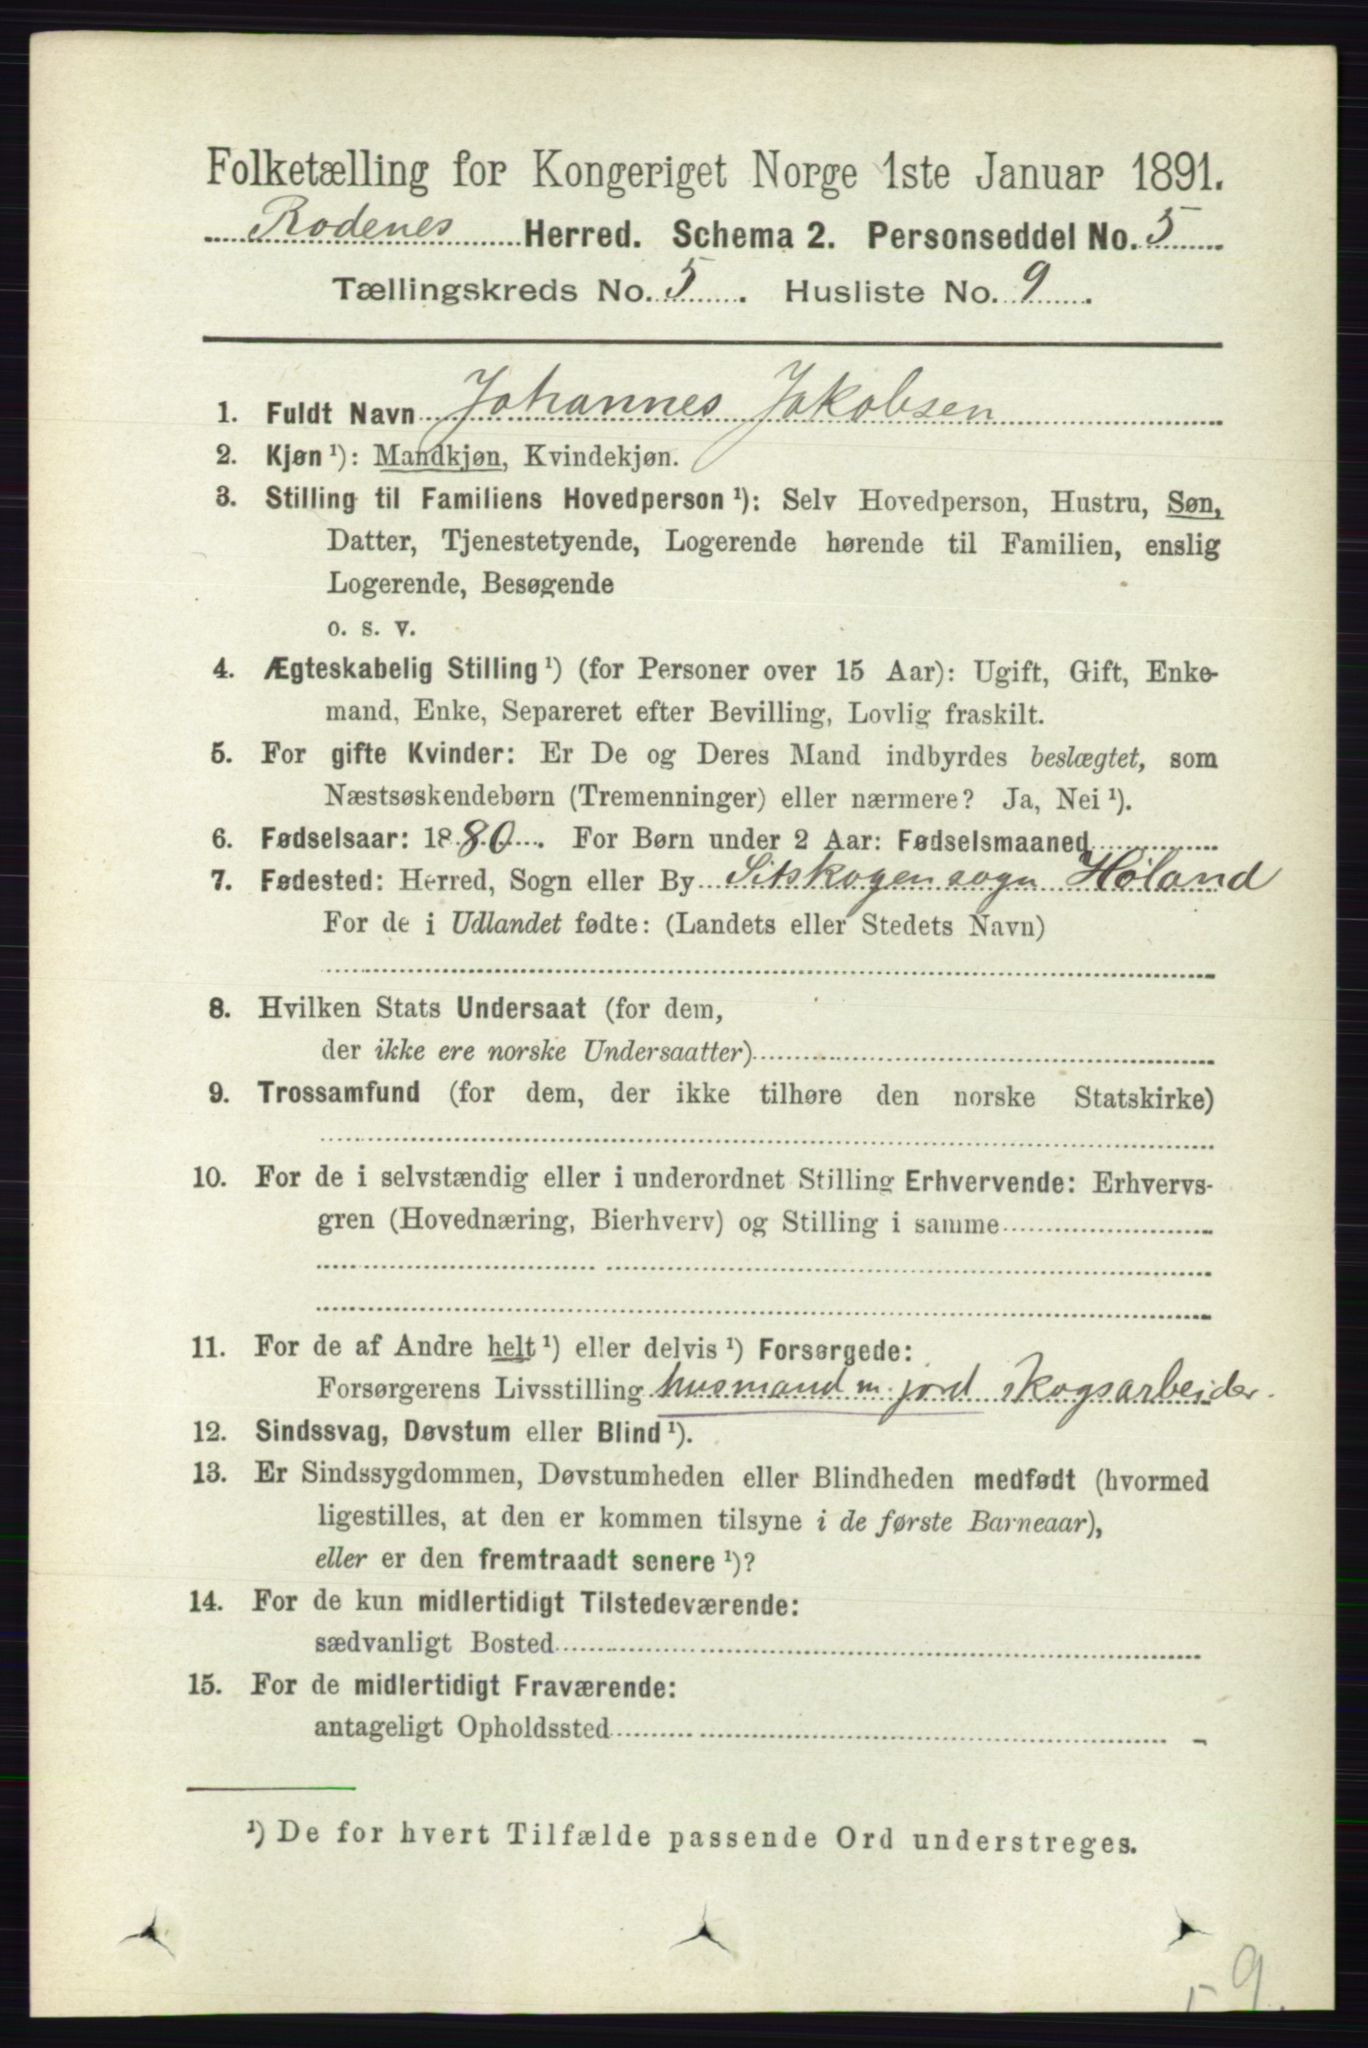 Folketælling for Kongeriget Norge 1ste Januar 1891.
Rødenes Herred. Schema 2. Personseddel No. 5
Tællingskreds No. 5. Husliste No. 9.
1. Fuldt Navn Johannes Jakobsen
2. Kjøn ¹): Mandkjøn, Kvindekjøn.
3. Stilling til Familiens Hovedperson ¹): Selv Hovedperson, Hustru, Søn,
Datter, Tjenestetyende, Logerende hørende til Familien, enslig
Logerende, Besøgende
o. s. v.
4. Ægteskabelig Stilling ¹) (for Personer over 15 Aar): Ugift, Gift, Enke-
mand, Enke, Separeret efter Bevilling, Lovlig fraskilt.
5. For gifte Kvinder: Er De og Deres Mand indbyrdes beslægtet, som
Næstsøskendebørn (Tremenninger) eller nærmere? Ja, Nei ¹).
6. Fødselsaar: 1880. For Børn under 2 Aar: Fødselsmaaned
7. Fødested: Herred, Sogn eller By Sitskogen sogn Høland
For de i Udlandet fødte: (Landets eller Stedets Navn)
8. Hvilken Stats Undersaat (for dem,
der ikke ere norske Undersaatter)
9. Trossamfund (for dem, der ikke tilhøre den norske Statskirke)
10. For de i selvstændig eller i underordnet Stilling Erhvervende: Erhvervs-
gren (Hovednæring, Bierhverv) og Stilling i samme
11. For de af Andre helt ¹) eller delvis ¹) Forsørgede:
Forsørgerens Livsstilling husmand m. jord skogsarbeider.
12. Sindssvag, Døvstum eller Blind ¹).
13. Er Sindssygdommen, Døvstumheden eller Blindheden medfødt (hvormed
ligestilles, at den er kommen tilsyne i de første Barneaar),
eller er den fremtraadt senere ¹)?
14. For de kun midlertidigt Tilstedeværende:
sædvanligt Bosted
15. For de midlertidigt Fraværende:
antageligt Opholdssted
¹) De for hvert Tilfælde passende Ord understreges.
9.